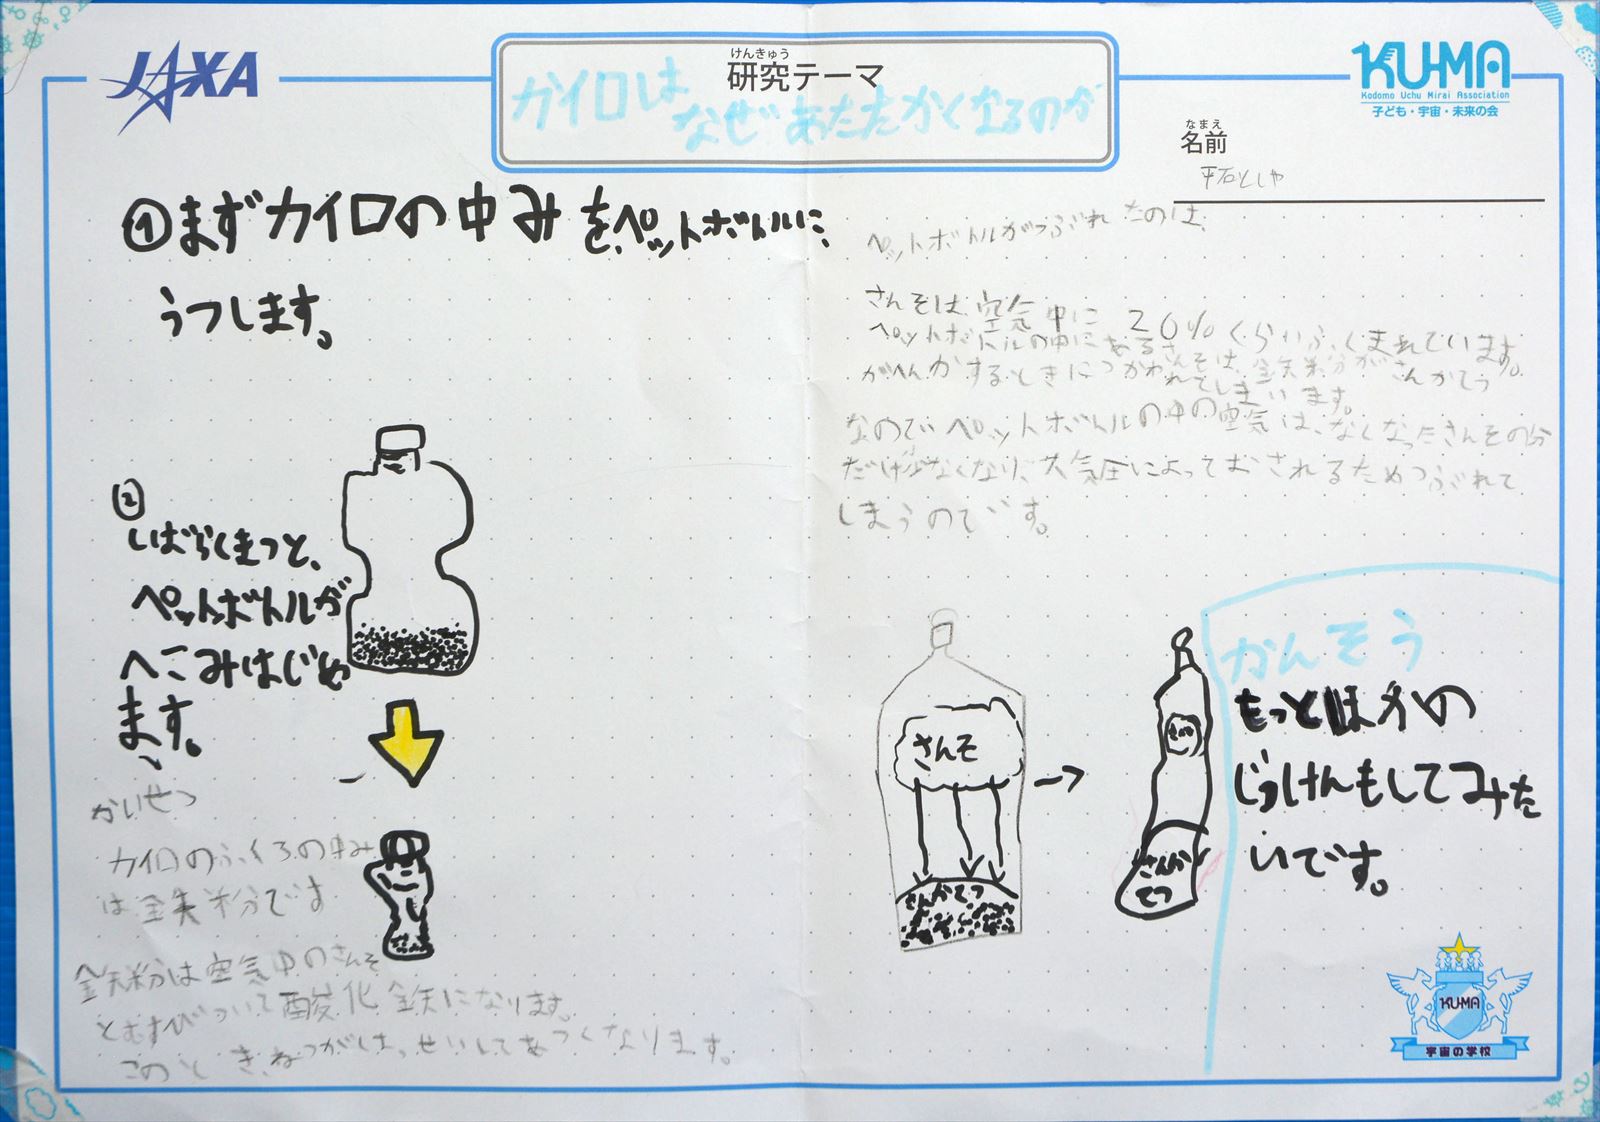 JAXA
けんきゅう
研究テーマ
カイロは
なぜあたたかくなるのか
KU-MA
Kodomo Uchu Mirai Association
子ども・宇宙・未来の会
なまえ
名前
平石としや
①まずカイロの中みをペットボトルに、
うつします。
②
しばらくまつと、
ペットボトルが
へこみはじめ
ます。
かいせつ
カイロのふくろの中み
は鉄粉です
鉄粉は空気中のさんそ
とむすびついて酸化鉄になります。
このとき、ねつがはっせいしてあつくなります。
ペットボトルがつぶれたのは、
さんそは、空気中に20%くらいふくまれています。
ペットボトルの中にあるさんそは、鉄粉がさんかてつ
がへんかするときにつかわれてしまいます。
なのでペットボトルの中の空気は、なくなったさんその分
だけ少なくなり、大気圧によっておされるためつぶれて
しまうのです。
さんそ
さんかてつ
さんか
てつ
かんそう
もっとほかの
じっけんもしてみた
いです。
KU-MA
宇宙の学校